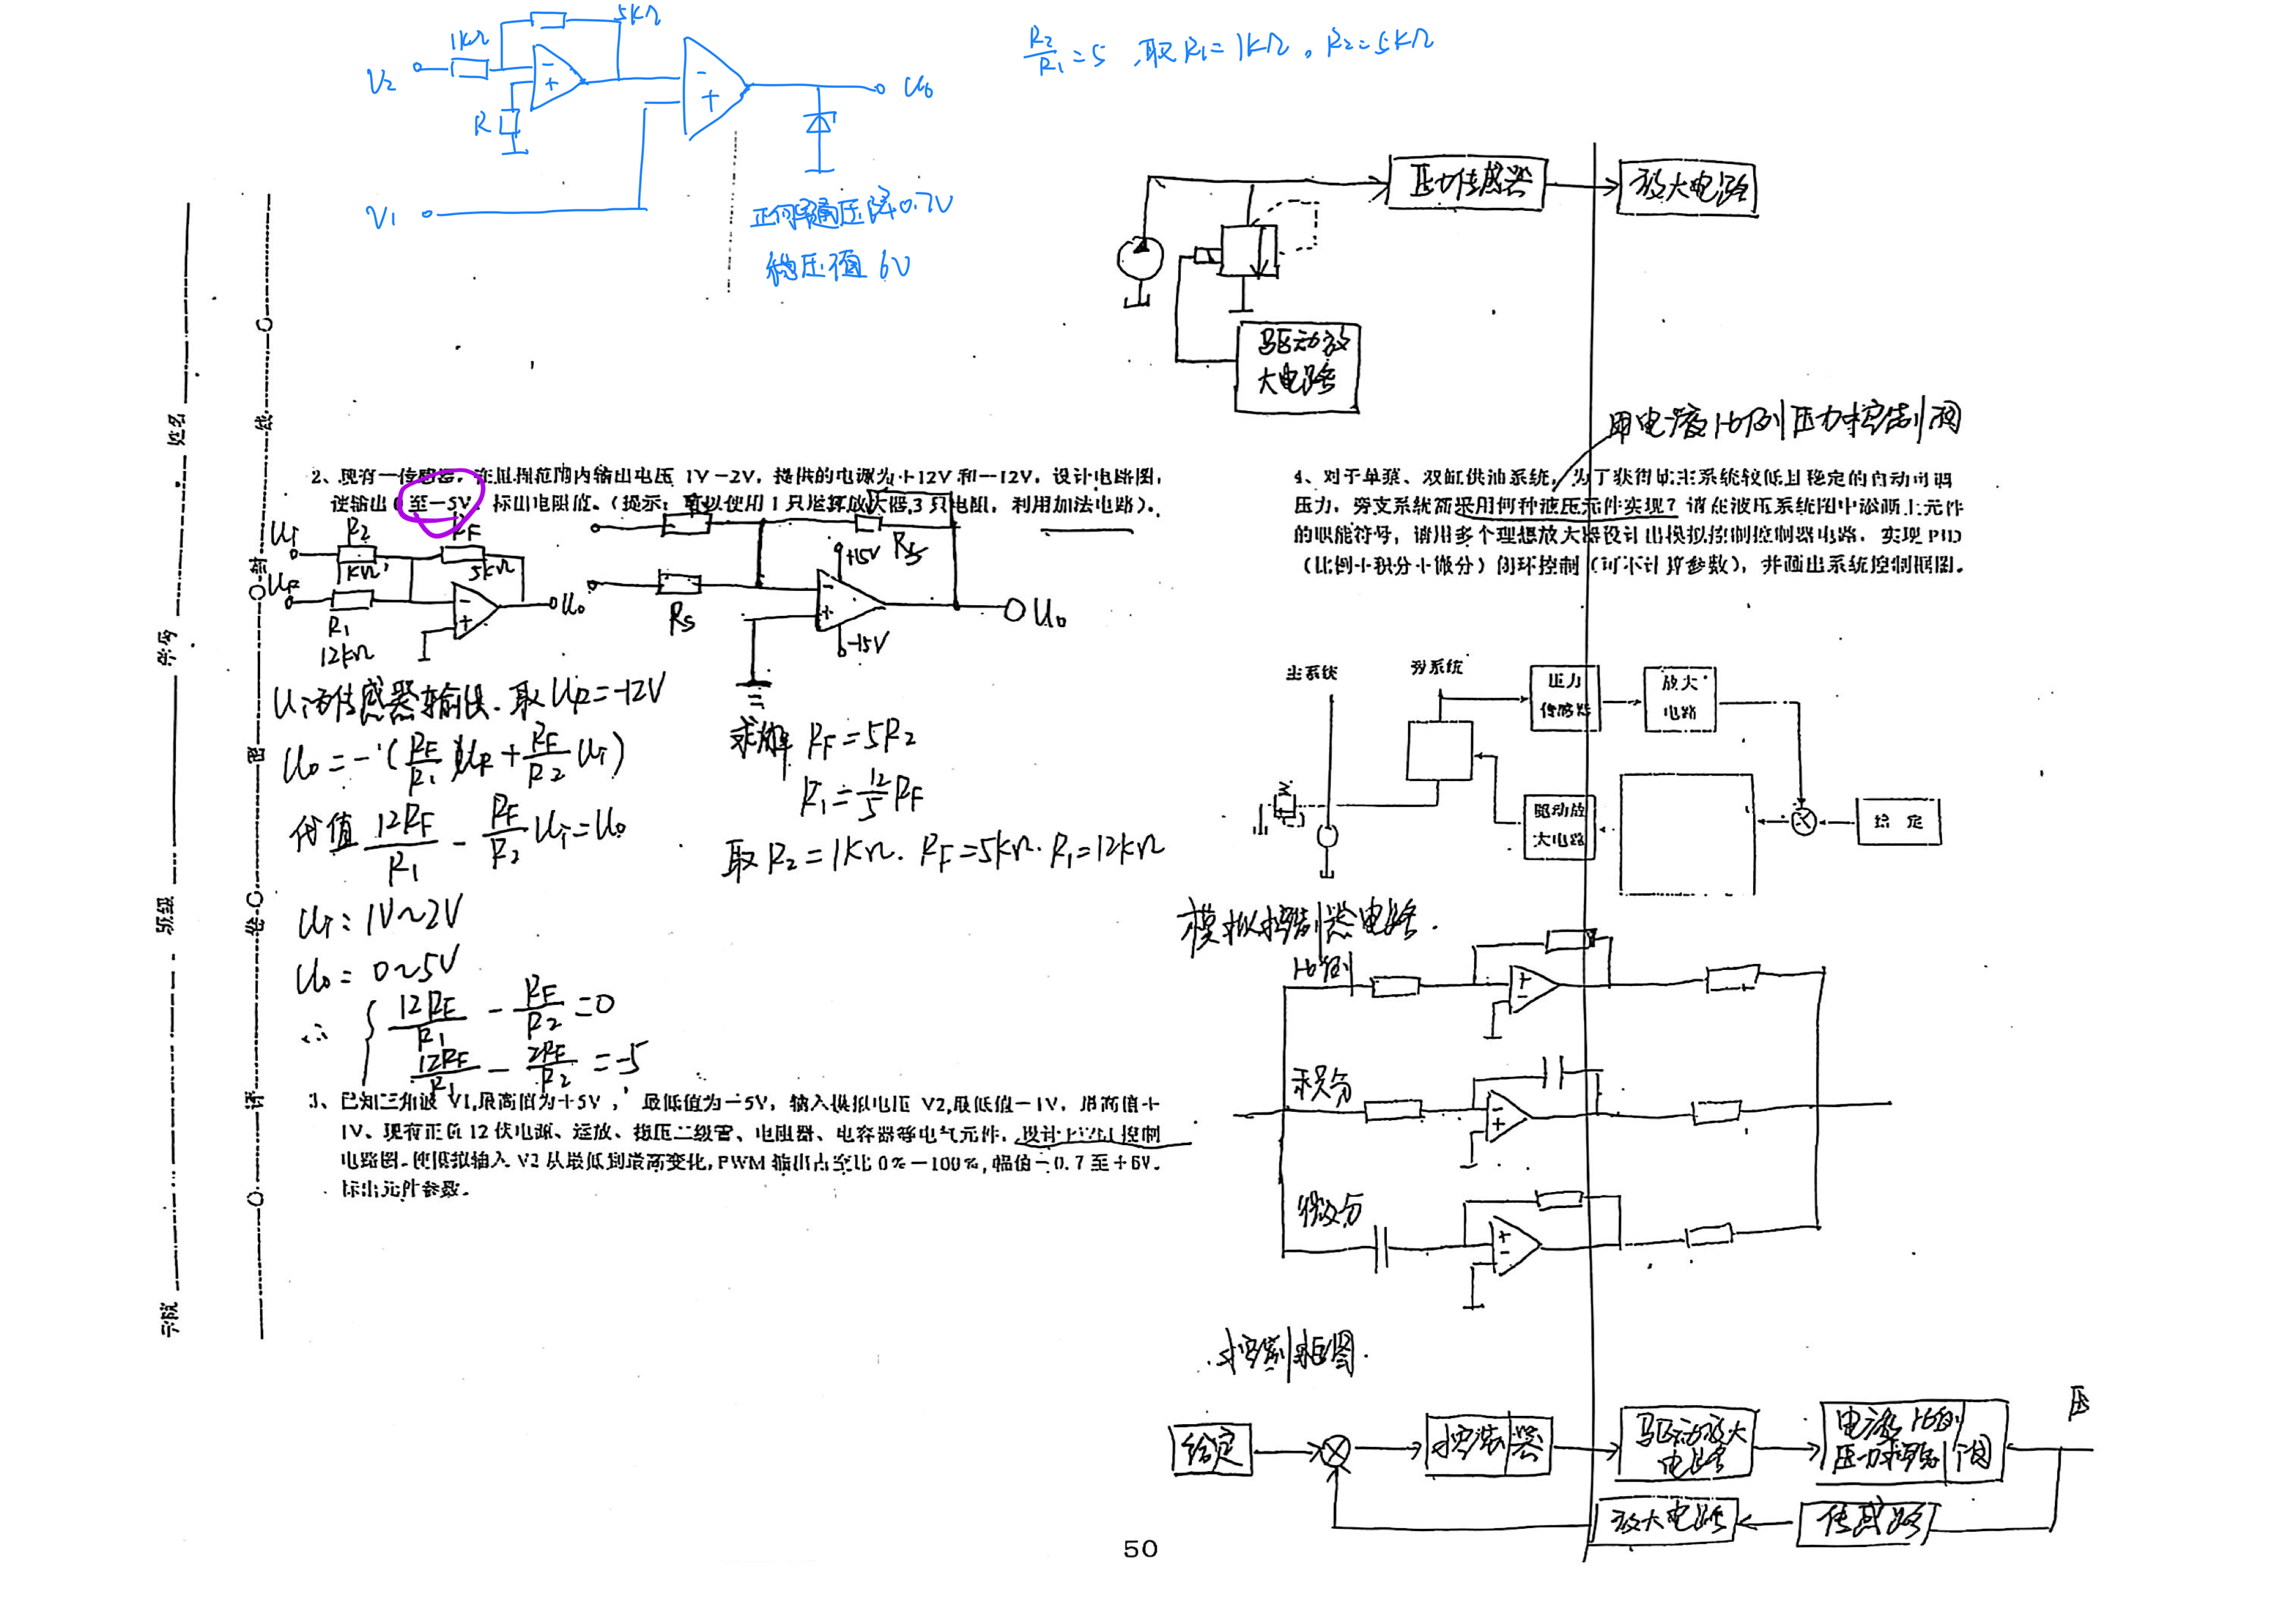 5KΩ
1KΩ
V2
R
V1
U0
正向导通压降0.7V
稳压值 6V
R2/R1=5，取R1=1KΩ。R2=5KΩ
压力传感器
放大电路
驱动放
大电路
姓名
学号
班级
学院
线
封
密
卷
评
2、现有一传感器，在量程范围内输出电压 1V-2V，提供的电源为+12V 和-12V，设计电路图，
使输出 0 至-5V，标出电阻值。（提示：可以使用 1 只运算放大器,3 只电阻，利用加法电路）。
Ui
R2
KΩ
RF
5KΩ
UR
R1
12KΩ
U0
R5
+15V
-15V
U0
Ui为传感器输出．取UR=-12V
U0=-(RF/R1 UR+RF/R2 Ui)
代值 12RF/R1 - RF/R2 Ui=U0
Ui：1V~2V
U0= 0~5V
∴ { 12RF/R1 - RF/R2=0
12RF/R1 - 2RF/R2=-5
求解 RF=5R2
R1=12/5 RF
取R2=1KΩ．RF=5KΩ．R1=12KΩ
3、已知三角波 V1,最高值为+5V，最低值为-5V，输入模拟电压 V2,最低值-1V，最高值+
1V、现有正负 12 伏电源、运放、稳压二级管、电阻器、电容器等电气元件，设计 PWM 控制
电路图。使模拟输入 V2 从最低到最高变化,PWM 输出占空比 0%-100%,幅值-0.7 至+6V。
标出元件参数。
用电液比例压力控制阀
4、对于单泵、双缸供油系统，为了获得比主系统较低且稳定的自动可调
压力，旁支系统需采用何种液压元件实现？请在液压系统图中添画上元件
的职能符号，请用多个理想放大器设计出模拟控制控制器电路，实现 PID
（比例+积分+微分）闭环控制（可不计算参数），并画出系统控制框图。
主系统
旁系统
压力
传感器
放大
电路
驱动放
大电路
给 定
模拟控制器电路．
比例
积分
微分
控制框图．
给定
控制器
驱动放大
电路
电液比例
压力控制阀
压
放大电路
传感器
50